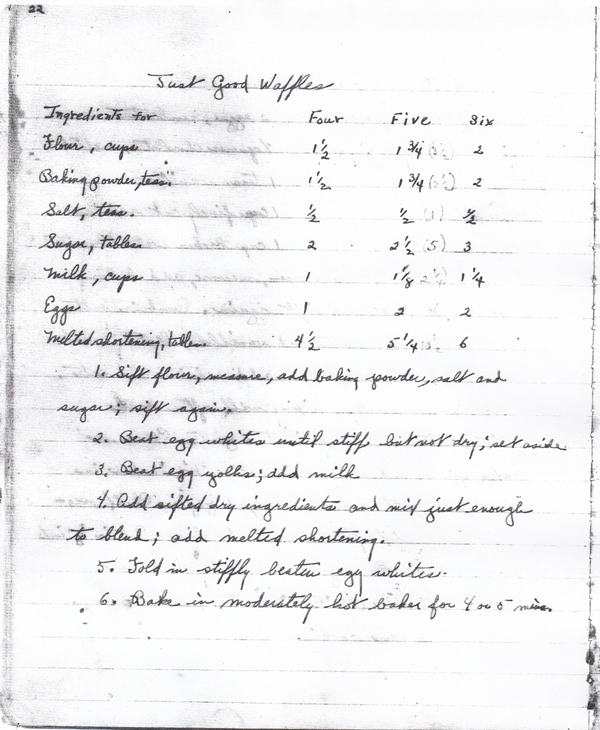 22
Just Good Waffles
Ingredients for Four Five Six
Flour, cups 1 1/2 1 3/4 (3 1/2) 2
Baking powder, teas. 1 1/2 1 3/4 (3 1/2) 2
Salt, teas. 1/2 1/2 (1)
Sugar, tables. 2 2 1/2 (5) 3
Milk, cups 1 1 1/8 2 1/4 1 1/4
Eggs 1 2 4 2
Melted shortening, tables. 4 1/2 5 1/4 6
1. Sift flour, measure, add baking powder, salt and
sugar; sift again.
2. Beat egg whites until stiff but not dry; set aside
3. Beat egg yolks; add milk
4. Add sifted dry ingredients and mix just enough
to blend; add melted shortening.
5. Fold in stiffly beaten egg whites.
6. Bake in moderately hot baker for 4 or 5 mins.